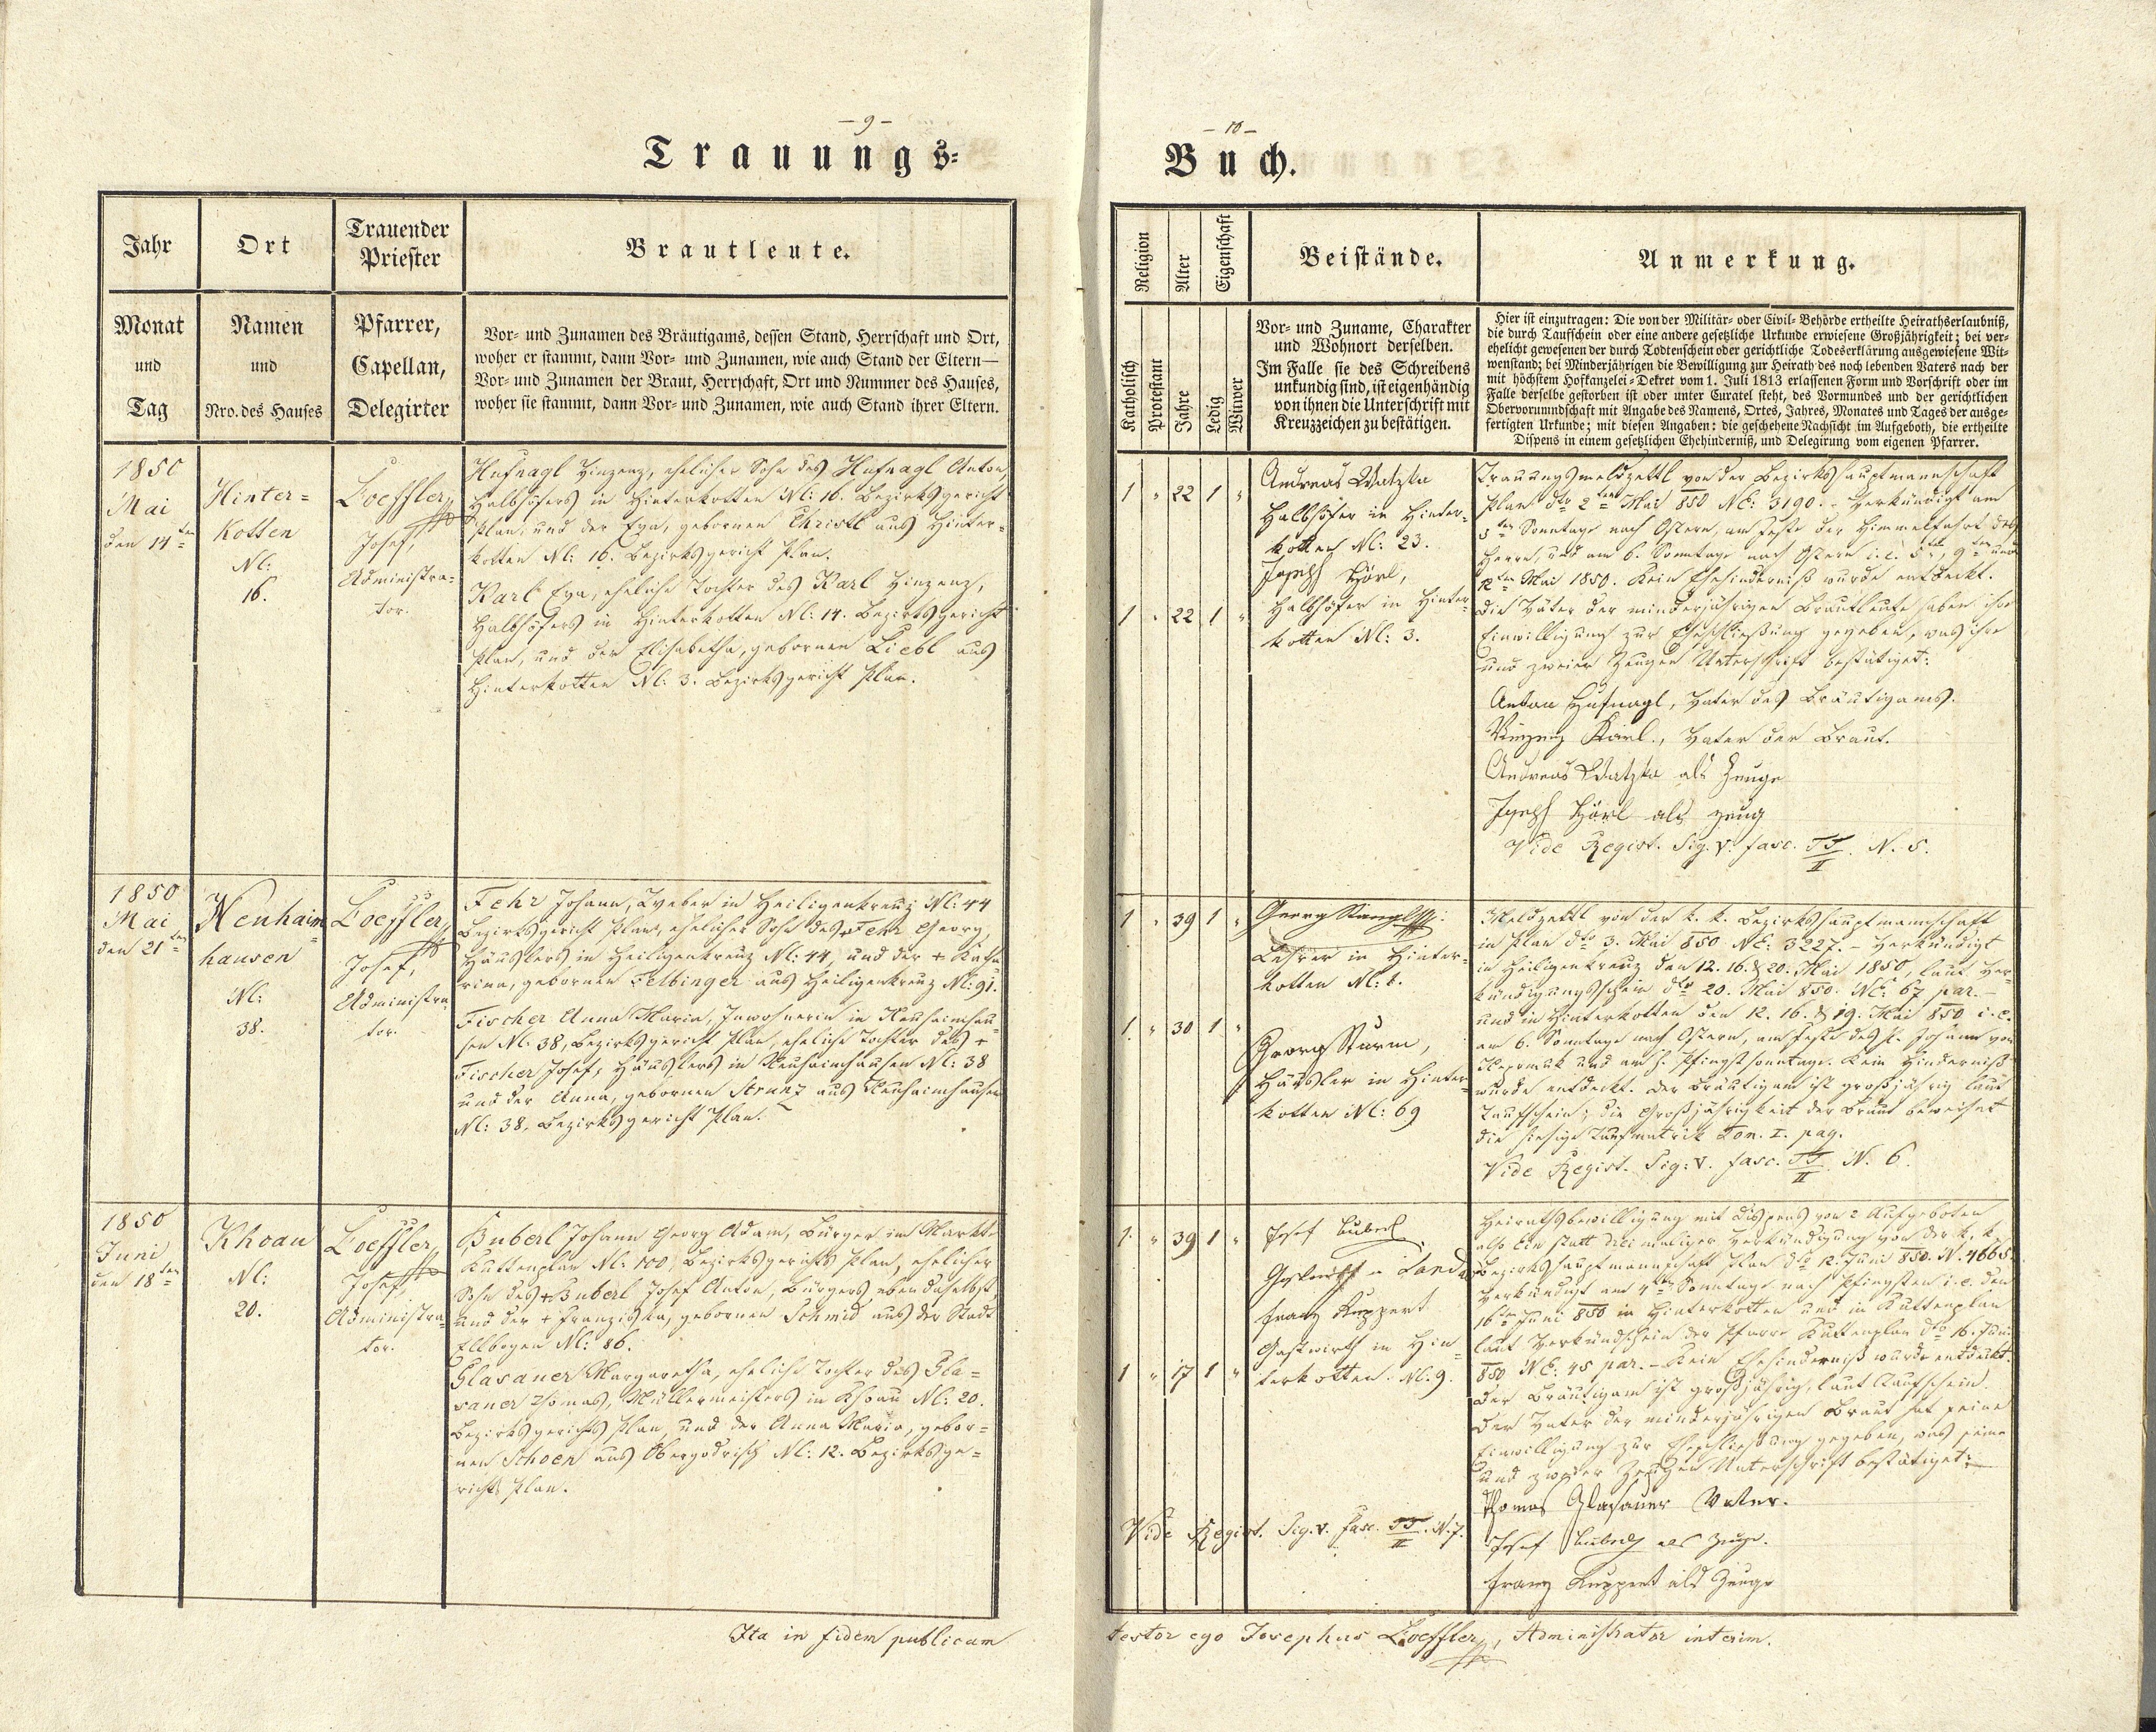 — 9 —
Trauungs-
Jahr
Ort
Trauender
Priester
Brautleute.
Monat
und
Tag
Namen
und
Nro. des Hauses
Pfarrer,
Capellan,
Delegirter
Vor- und Zunamen des Bräutigams, dessen Stand, Herrschaft und Ort,
woher er stammt, dann Vor- und Zunamen, wie auch Stand der Eltern—
Vor- und Zunamen der Braut, Herrschaft, Ort und Nummer des Hauses,
woher sie stammt, dann Vor- und Zunamen, wie auch Stand ihrer Eltern.
1850
Mai
den 14ten
Hinter=
Kotten
Nl:
16.
Loeffler
Josef,
Administra=
tor.
Hufnagl Vinzenz, ehelicher Sohn des Hufnagl Anton,
Halbhöfers in Hinterkotten Nl: 16. Bezirksgericht
Plan, und der Eva, gebornen Christl aus Hinter-
kotten Nl: 16. Bezirksgericht Plan.
Karl Eva, eheliche Tochter des Karl Vinzenz,
Halbhöfers in Hinterkotten Nl: 14. Bezirksgericht
Plan, und der Elisabetha, gebornen Liebl aus
Hinterkotten Nl: 3. Bezirksgericht Plan.
1850
Mai
den 21ten
Neuhaim=
hausen
Nl:
38.
Loeffler
Josef,
Administra
tor.
Fehr Johann, Weber in Heiligenkreuz Nl: 44
Bezirksgericht Plan, ehelicher Sohn des Fehr Georg,
Häuslers in Heiligenkreuz Nl: 44, und der + Katha
rina, gebornen Felbinger aus Heiligenkreuz Nl: 91.
Fischer Anna Maria, Inwohnerin in Neuhaimhau=
sen Nl: 38, Bezirksgericht Plan, eheliche Tochter des +
Fischer Josef, Häuslers in Neuhaimhausen Nl: 38
und der Anna, gebornen Strunz aus Neuhaimhausen
Nl: 38. Bezirksgericht Plan.
1850
Juni
den 18ten
Khoau
Nl:
20.
Loeffler
Josef,
Administra=
tor.
Buberl Johann Georg Adam, Bürger im Markte
Kuttenplan Nl: 100, Bezirksgerichts Plan, ehelicher
Sohn des + Buberl Josef Anton, Bürgers ebendaselbst,
und der + Franziska, gebornen Schmid aus der Stadt
Ellbogen Nl: 86.
Glasauer Margaretha, eheliche Tochter des Gla=
sauer Thomas, Müllermeisters in Khoau Nl: 20.
Bezirksgerichts Plan, und der Anna Maria, gebor=
nen Schoen aus Obergodrisch Nl: 12. Bezirksge=
richts Plan.
Ita in fidem publicam
— 10 —
Buch.
Religion
Alter
Eigenschaft
Beistände.
Anmerkung.
Katholisch
Protestant
Jahre
Ledig
Witwer
Vor- und Zuname, Charakter
und Wohnort derselben.
Im Falle sie des Schreibens
unkundig sind, ist eigenhändig
von ihnen die Unterschrift mit
Kreuzzeichen zu bestätigen.
Hier ist einzutragen: Die von der Militär- oder Civil-Behörde ertheilte Heirathserlaubniß,
die durch Taufschein oder eine andere gesetzliche Urkunde erwiesene Großjährigkeit; bei ver-
ehelicht gewesenen der durch Todtenschein oder gerichtliche Todeserklärung ausgewiesene Wit-
wenstand; bei Minderjährigen die Bewilligung zur Heirath des noch lebenden Vaters nach der
mit höchstem Hofkanzelei-Dekret vom 1. Juli 1813 erlassenen Form und Vorschrift oder im
Falle derselbe gestorben ist oder unter Curatel steht, des Vormundes und der gerichtlichen
Obervormundschaft mit Angabe des Namens, Ortes, Jahres, Monates und Tages der ausge-
fertigten Urkunde; mit diesen Angaben: die geschehene Nachsicht im Aufgeboth, die ertheilte
Dispens in einem gesetzlichen Ehehinderniß, und Delegirung vom eigenen Pfarrer.
1 " 22 1 "
Andreas Watzka
Halbhöfer in Hinter-
kotten Nl: 23.
1 " 22 1 "
Joseph Hörl,
Halbhöfer in Hinter-
kotten Nl: 3.
Trauungsmeldzettl von der Bezirkshauptmannschaft
Plan dto 2ten Mai 850 NE: 3190. - Verkündigt am
5ten Sonntage nach Ostern, am Feste der Himmelfahrt des
Herrn, und am 6. Sonntage nach Ostern i. e. 5ten, 9ten und
12ten Mai 1850. Kein Ehehinderniß wurde entdeckt.
Die Väter der minderjährigen Brautleute haben ihre
Einwilligung zur Eheschließung gegeben, was ihre
und zweier Zeugen Unterschrift bestätiget:
Anton Hufnagl, Vater des Bräutigams.
Vinzenz Karl, Vater der Braut.
Andreas Watzka als Zeuge
Joseph Hörl als Zeug
Vide Regist. Sig. V. fasc. TT/II. N. 5.
1 " 39 1 "
Georg Stangl
Lehrer in Hinter-
kotten Nl: 1.
1. " 30 1 "
Georg Sturm,
Häusler in Hinter-
kotten Nl: 69
Meldzettl von der k. k. Bezirkshauptmannschaft
in Plan dto 3. Mai 850 NE: 3227. - Verkündigt
in Heiligenkreuz den 12. 16. & 20. Mai 1850, laut Ver-
kündigungsschein dto 20. Mai 850. NE: 67 par. -
und in Hinterkotten den 12. 16. & 19. Mai 850 i. e.
am 6. Sonntage nach Ostern, am Feste des h. Johann von
Nepomuk und am h. Pfingstsonntage. Kein Hinderniß
wurde entdeckt. Der Bräutigam ist großjährig laut
Taufschein; die Großjährigkeit der Braut beweiset
die hiesige Taufmatrik Tom. I. pag.
Vide Regist. Sig: V. fasc. TT/II. N. 6.
1. " 39 1 "
Josef Buberl
Franz Ruppert
Gastwirth in Hin=
terkotten. Nl: 9.
1 " 17 1 "
Heirathsbewilligung mit Dispens von 2 Aufgeboten
also Ein statt dreimaliger Verkündigung von der k. k.
Bezirkshauptmannschaft Plan dto 12. Juni 850. N. 4665
Verkündigt am 4ten Sonntage nach Pfingsten i. e. den
16ten Juni 850 in Hinterkotten und in Kuttenplan
laut Verkündschein der Pfarre Kuttenplan dto 16. Juni
850 NE: 45 par. - Kein Ehehinderniß wurde entdeckt.
Der Bräutigam ist großjährig, laut Taufschein.
Der Vater der minderjährigen Braut hat seine
Einwilligung zur Eheschließung gegeben, was seine
und zweier Zeugen Unterschrift bestätiget:
Thomas Glasauer Vater.
Josef Buberl als Zeuge.
Franz Ruppert als Zeuge
Vide Regist. Sig. V. fasc. TT/II. N. 7.
testor ego Josephus Loeffler, Administrator interim.